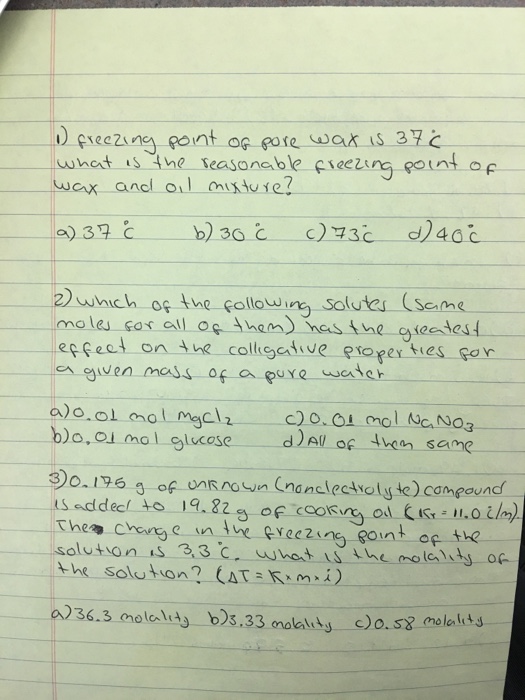 1) freezing point of pure wax is 37°C
what is the reasonable freezing point of
wax and oil mixture?
a) 37 °C b) 30 °C c) 73°C d) 40°C
2) which of the following solutes (same
moles for all of them) has the greatest
effect on the colligative properties for
a given mass of a pure water
a) 0.01 mol MgCl2 c) 0.01 mol NaNO3
b) 0.01 mol glucose d) All of them same
3) 0.175 g of unknown (nonelectrolyte) compound
is added to 19.82 g of cooking oil (Kf = 11.0 °C/m).
The change in the freezing point of the
solution is 3.3 °C. what is the molality of
the solution? (ΔT = K×m×i)
a) 36.3 molality b) 3.33 molality c) 0.58 molality